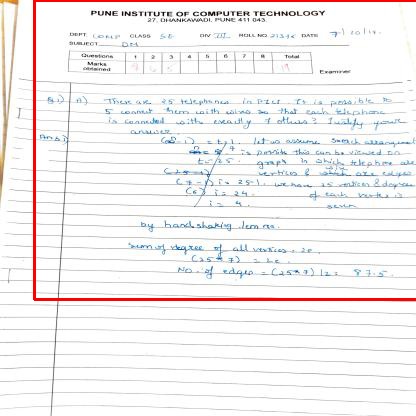 PUNE INSTITUTE OF COMPUTER TECHNOLOGY
27, DHANKAWADI, PUNE 411 043.
DEPT. COMP CLASS SE DIV III ROLL NO. DATE 7/10/19.
SUBJECT DM
Questions 1 2 3 4 5 6 7 8 Total
Marks obtained
Examiner
Q.1) A) There are 25 telephones in PICT. It is possible to
connect them with wires so that each telephone
is connected with exactly 7 others? Justify your
answer
Ans:) let us assume such arrangement
is possible this can be viewed as
graph in which telephone are
vertices & wires are edges
(7-1) i = 25-1. we have 25 vertices & degree
(6) i = 24. of each vertex is
i = 4. seven
by handshaking lemma.
sum of degree of all vertices = 2e.
(25*7) = 2e.
No. of edges = (25*7)/2 = 87.5.